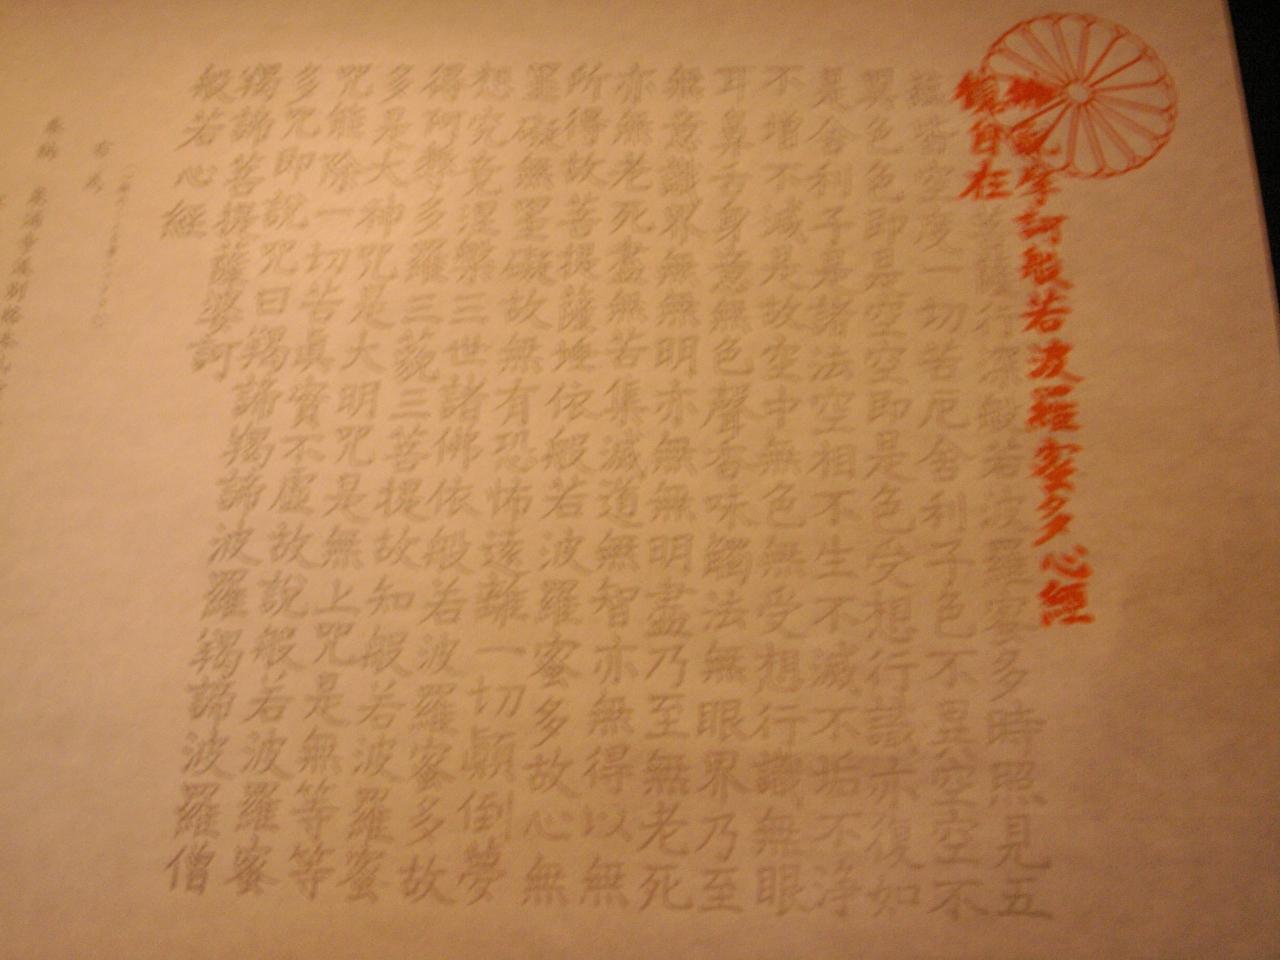 説摩訶般若波羅蜜多心經
觀自在菩薩行深般若波羅蜜多時照見五
蘊皆空度一切苦厄舍利子色不異空空不
異色色即是空空即是色受想行識亦復如
是舍利子是諸法空相不生不滅不垢不浄
不増不減是故空中無色無受想行識無眼
耳鼻舌身意無色聲香味觸法無眼界乃至
無意識界無無明亦無無明盡乃至無老死
亦無老死盡無苦集滅道無智亦無得以無
所得故菩提薩埵依般若波羅蜜多故心無
罣礙無罣礙故無有恐怖遠離一切顚倒夢
想究竟涅槃三世諸佛依般若波羅蜜多故
得阿耨多羅三藐三菩提故知般若波羅蜜
多是大神咒是大明咒是無上咒是無等等
咒能除一切苦眞實不虛故説般若波羅蜜
多咒即説咒曰羯諦羯諦波羅羯諦波羅僧
羯諦菩提薩婆訶
般若心經
右為
奉納